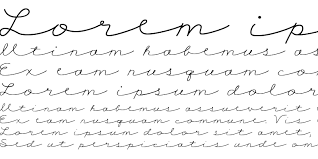 Lorem ip
Utinam habemus as
Ex eam nusquam con
Lorem ipsum dolor
Utinam habemus assueverit
Ex eam nusquam commune. Vis
Lorem ipsum dolor sit amet,
Sed ut perspiciatis unde om